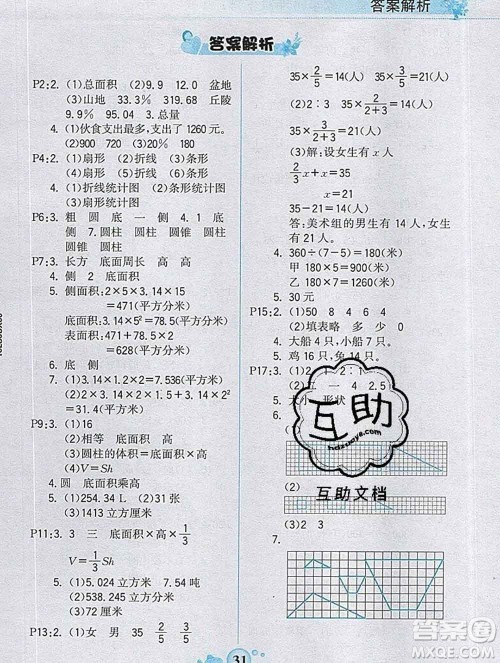 答案解析
答案解析
P2:2. (1)总面积 (2)9.9 12.0 盆地
(3)山地 33.3% 319.68 丘陵
9.9% 95.04 3.总量
4. (1)伙食支出最多,支出了1260元。
(2)900 720 (3)20% 180
P4:2. (1)扇形 (2)折线 (3)条形
(4)扇形 (5)折线 (6)条形
4. (1)折线统计图 (2)条形统计图
(3)扇形统计图
P6:3. 粗 圆 底 一 侧 4.1 底
侧 7.圆柱 圆柱 圆柱 圆
圆锥 圆柱 圆锥
P7:3. 长方 底面周长 高 高
4. 侧 2 底面
5. 侧面积:2×5×3.14×15
=471(平方分米)
底面积:3.14×5²=78.5(平方分米)
表面积:471+78.5×2
=628(平方分米)
6. 底 侧
7. (1)3.14×1×2×2
(2)3.14×1×2×5+3.14×1²×2
P9:3. (1)16
(2)相等 底面积 高
(3)圆柱的体积=底面积×高
(4)V=Sh
4. 圆 底面积乘高
5. (1)254.34 L (2)31张
(3)1413立方厘米
P11:3. 3 三 底面积×高×1/3
V=1/3Sh
5. (1)5.024立方米
(2)538.245立方厘米
(3)10立方分米
P13:2. (1)女 男 35 2/5 3/5
35×2/5=14(人)
(2)2:3 35×2/(2+3)=14(人)
35×3/(2+3)=21(人)
(3)解:设女生有x人
2/3x+x=35
x=21
35-21=14(人)
答:美术组的男生有14人,女生有21人。
4. 360÷(7-5)=180(米)
甲 180×5=900(米)
乙 180×7=1260(米)
5. 30元
P15:2. (1)50 8 4 6 4
(2)填表略 多 少 0
4. 大船4只,小船7只。
5. 鸡16只,兔14只。
P17:3. (1)2 2:1
(2)一 4 2.5
5. 大小 形状
6.
(2)
(3)2 声
7.
互助
hdzuoye.com
互助文档
31
答案圈
MXQE.COM